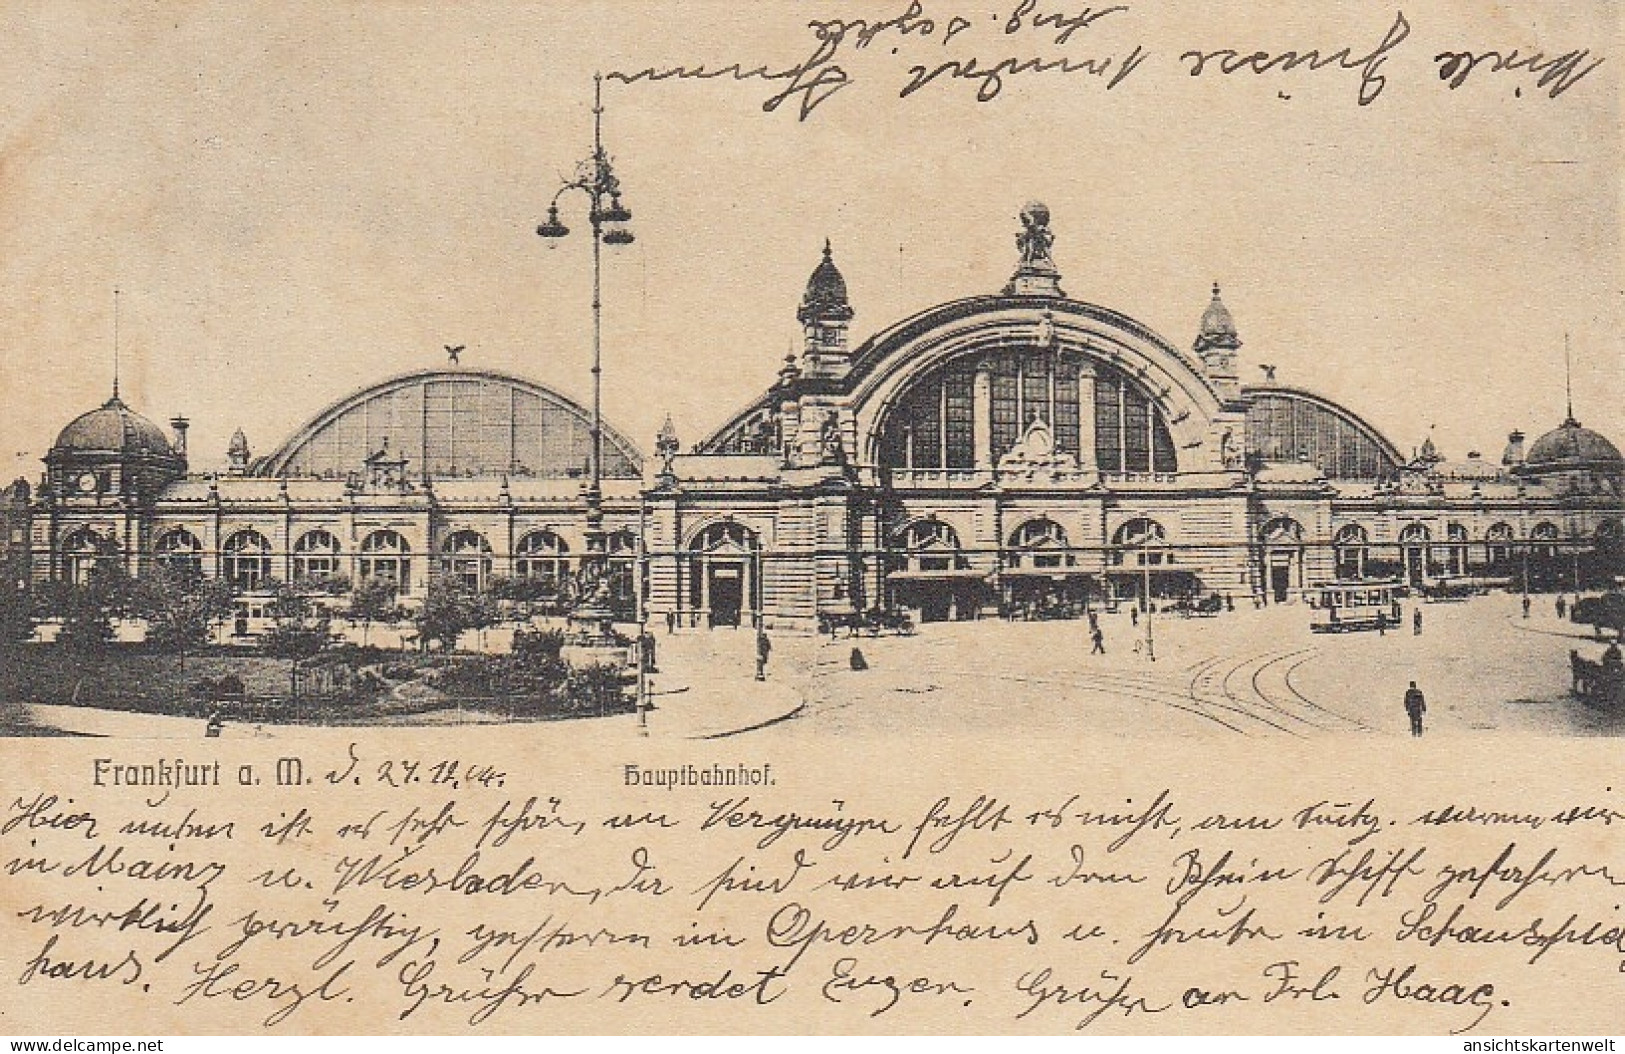 Viele Grüsse sendet
Frankfurt a. M. d. 27.12.04.
Hauptbahnhof.
Hier unten ist es sehr schön, an Vergnügen fehlt es nicht, am waren wir
in Mainz u. Wiesbaden, da sind wir auf dem Rhein Schiff gefahren
wirklich prächtig, gestern im Opernhaus u. heute im Schauspiel
haus. Herzl. Grüße sendet Eugen. Grüße an Frl. Haag.
delcampe.net
ansichtskartenwelt